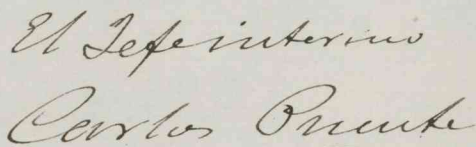 El Jefe interino
Carlos Puente